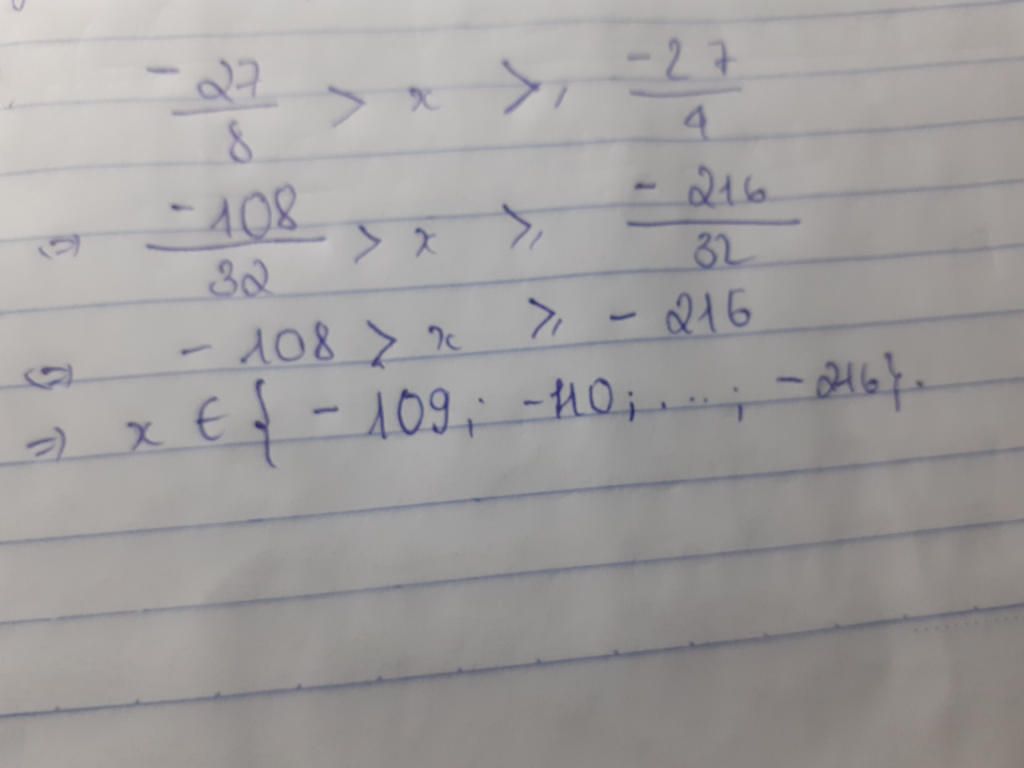 -27/8 > x ≥ -27/4
⇔ -108/32 > x ≥ -216/32
⇔ -108 > x ≥ -216
⇒ x ∈ { -109; -110; ...; -216}.